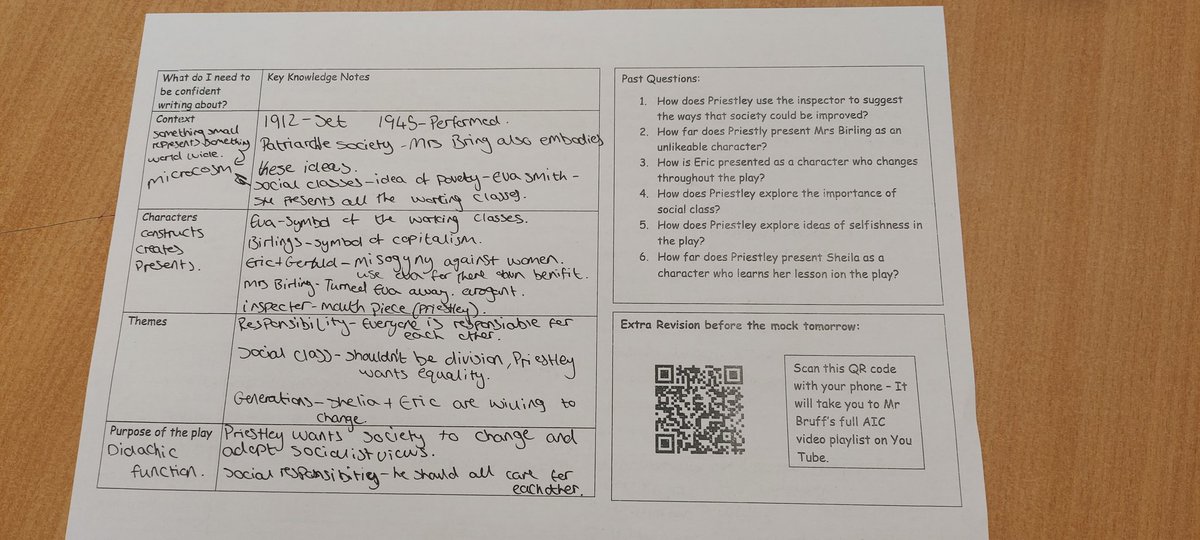 What do I need to
be confident
writing about?
Key Knowledge Notes
Context
something small
represents something
world wide.
microcosm
1912 - Set 1945 - Performed.
Patriarchle society - Mrs Bring also embodies
these ideas.
social classes - idea of Poverty - Eva smith -
she presents all the working classes.
Characters
constructs
creates
presents.
Eva - symbol of the working classes.
Birlings - symbol of capitalism.
Eric + Gerfuld - misogyny against women.
use eva for there own benifit.
Mrs Birling - Turned Eva away. arogent.
inspecter - mouth piece (Priestley).
Themes
Responsibility - Everyone is responsiable for
each other.
Social class - shouldn't be division, Priestley
wants equality.
Generations - Shelia + Eric are willing to
change.
Purpose of the play
Didachic
function.
Priestley wants society to change and
adept socialist views.
Social responsibitiey - he should all care for
eachother.
Past Questions:
1. How does Priestley use the inspector to suggest
the ways that society could be improved?
2. How far does Priestly present Mrs Birling as an
unlikeable character?
3. How is Eric presented as a character who changes
throughout the play?
4. How does Priestley explore the importance of
social class?
5. How does Priestley explore ideas of selfishness in
the play?
6. How far does Priestley present Sheila as a
character who learns her lesson ion the play?
Extra Revision before the mock tomorrow:
Scan this QR code
with your phone – It
will take you to Mr
Bruff's full AIC
video playlist on You
Tube.